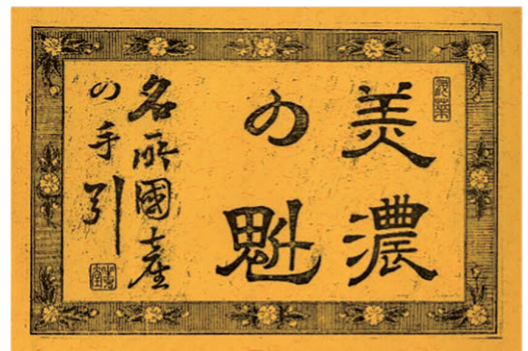 美濃
の魁
名所國産
の手引